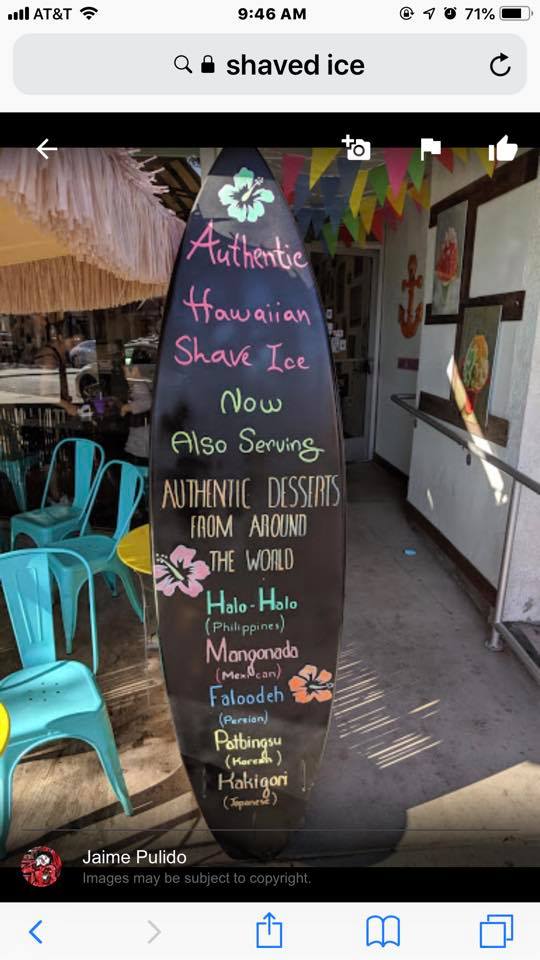 AT&T
9:46 AM
71%
shaved ice
Authentic
Hawaiian
Shave Ice
Now
Also Serving
AUTHENTIC DESSERTS
FROM AROUND
THE WORLD
Halo-Halo
(Philippines)
Mangonada
(Mexican)
Faloodeh
(Persian)
Patbingsu
(Korean)
Kakigori
(Japanese)
Jaime Pulido
Images may be subject to copyright.